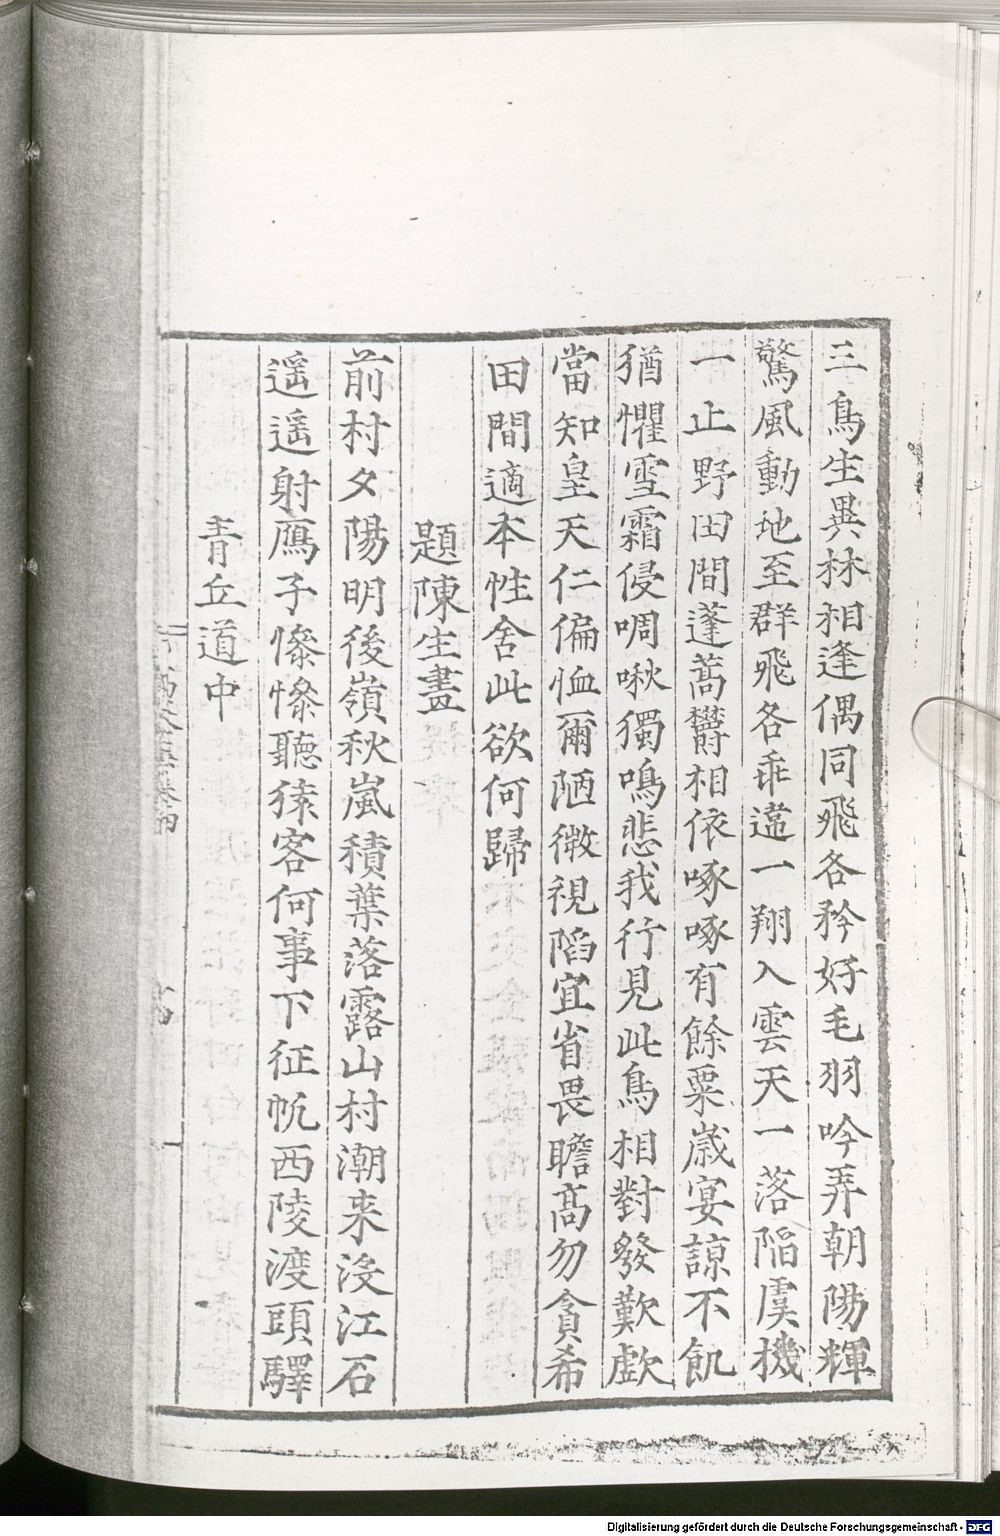 三鳥生異林相逢偶同飛各矜好毛羽吟弄朝陽輝
驚風動地至群飛各乖違一翔入雲天一落陷虞機
一止野田間蓬蒿欝相依啄啄有餘粟歲宴諒不飢
猶懼雪霜侵啁啾獨鳴悲我行見此鳥相對發歎歔
當知皇天仁偏恤爾陋微視陷宜省畏瞻髙勿貪希
田間適本性舍此欲何歸
題陳生畫
前村夕陽明後嶺秋嵐積葉落露山村潮来沒江石
遥遥射鴈子慘慘聽猿客何事下征帆西陵渡頭驛
青丘道中
Digitalisierung gefördert durch die Deutsche Forschungsgemeinschaft - DFG